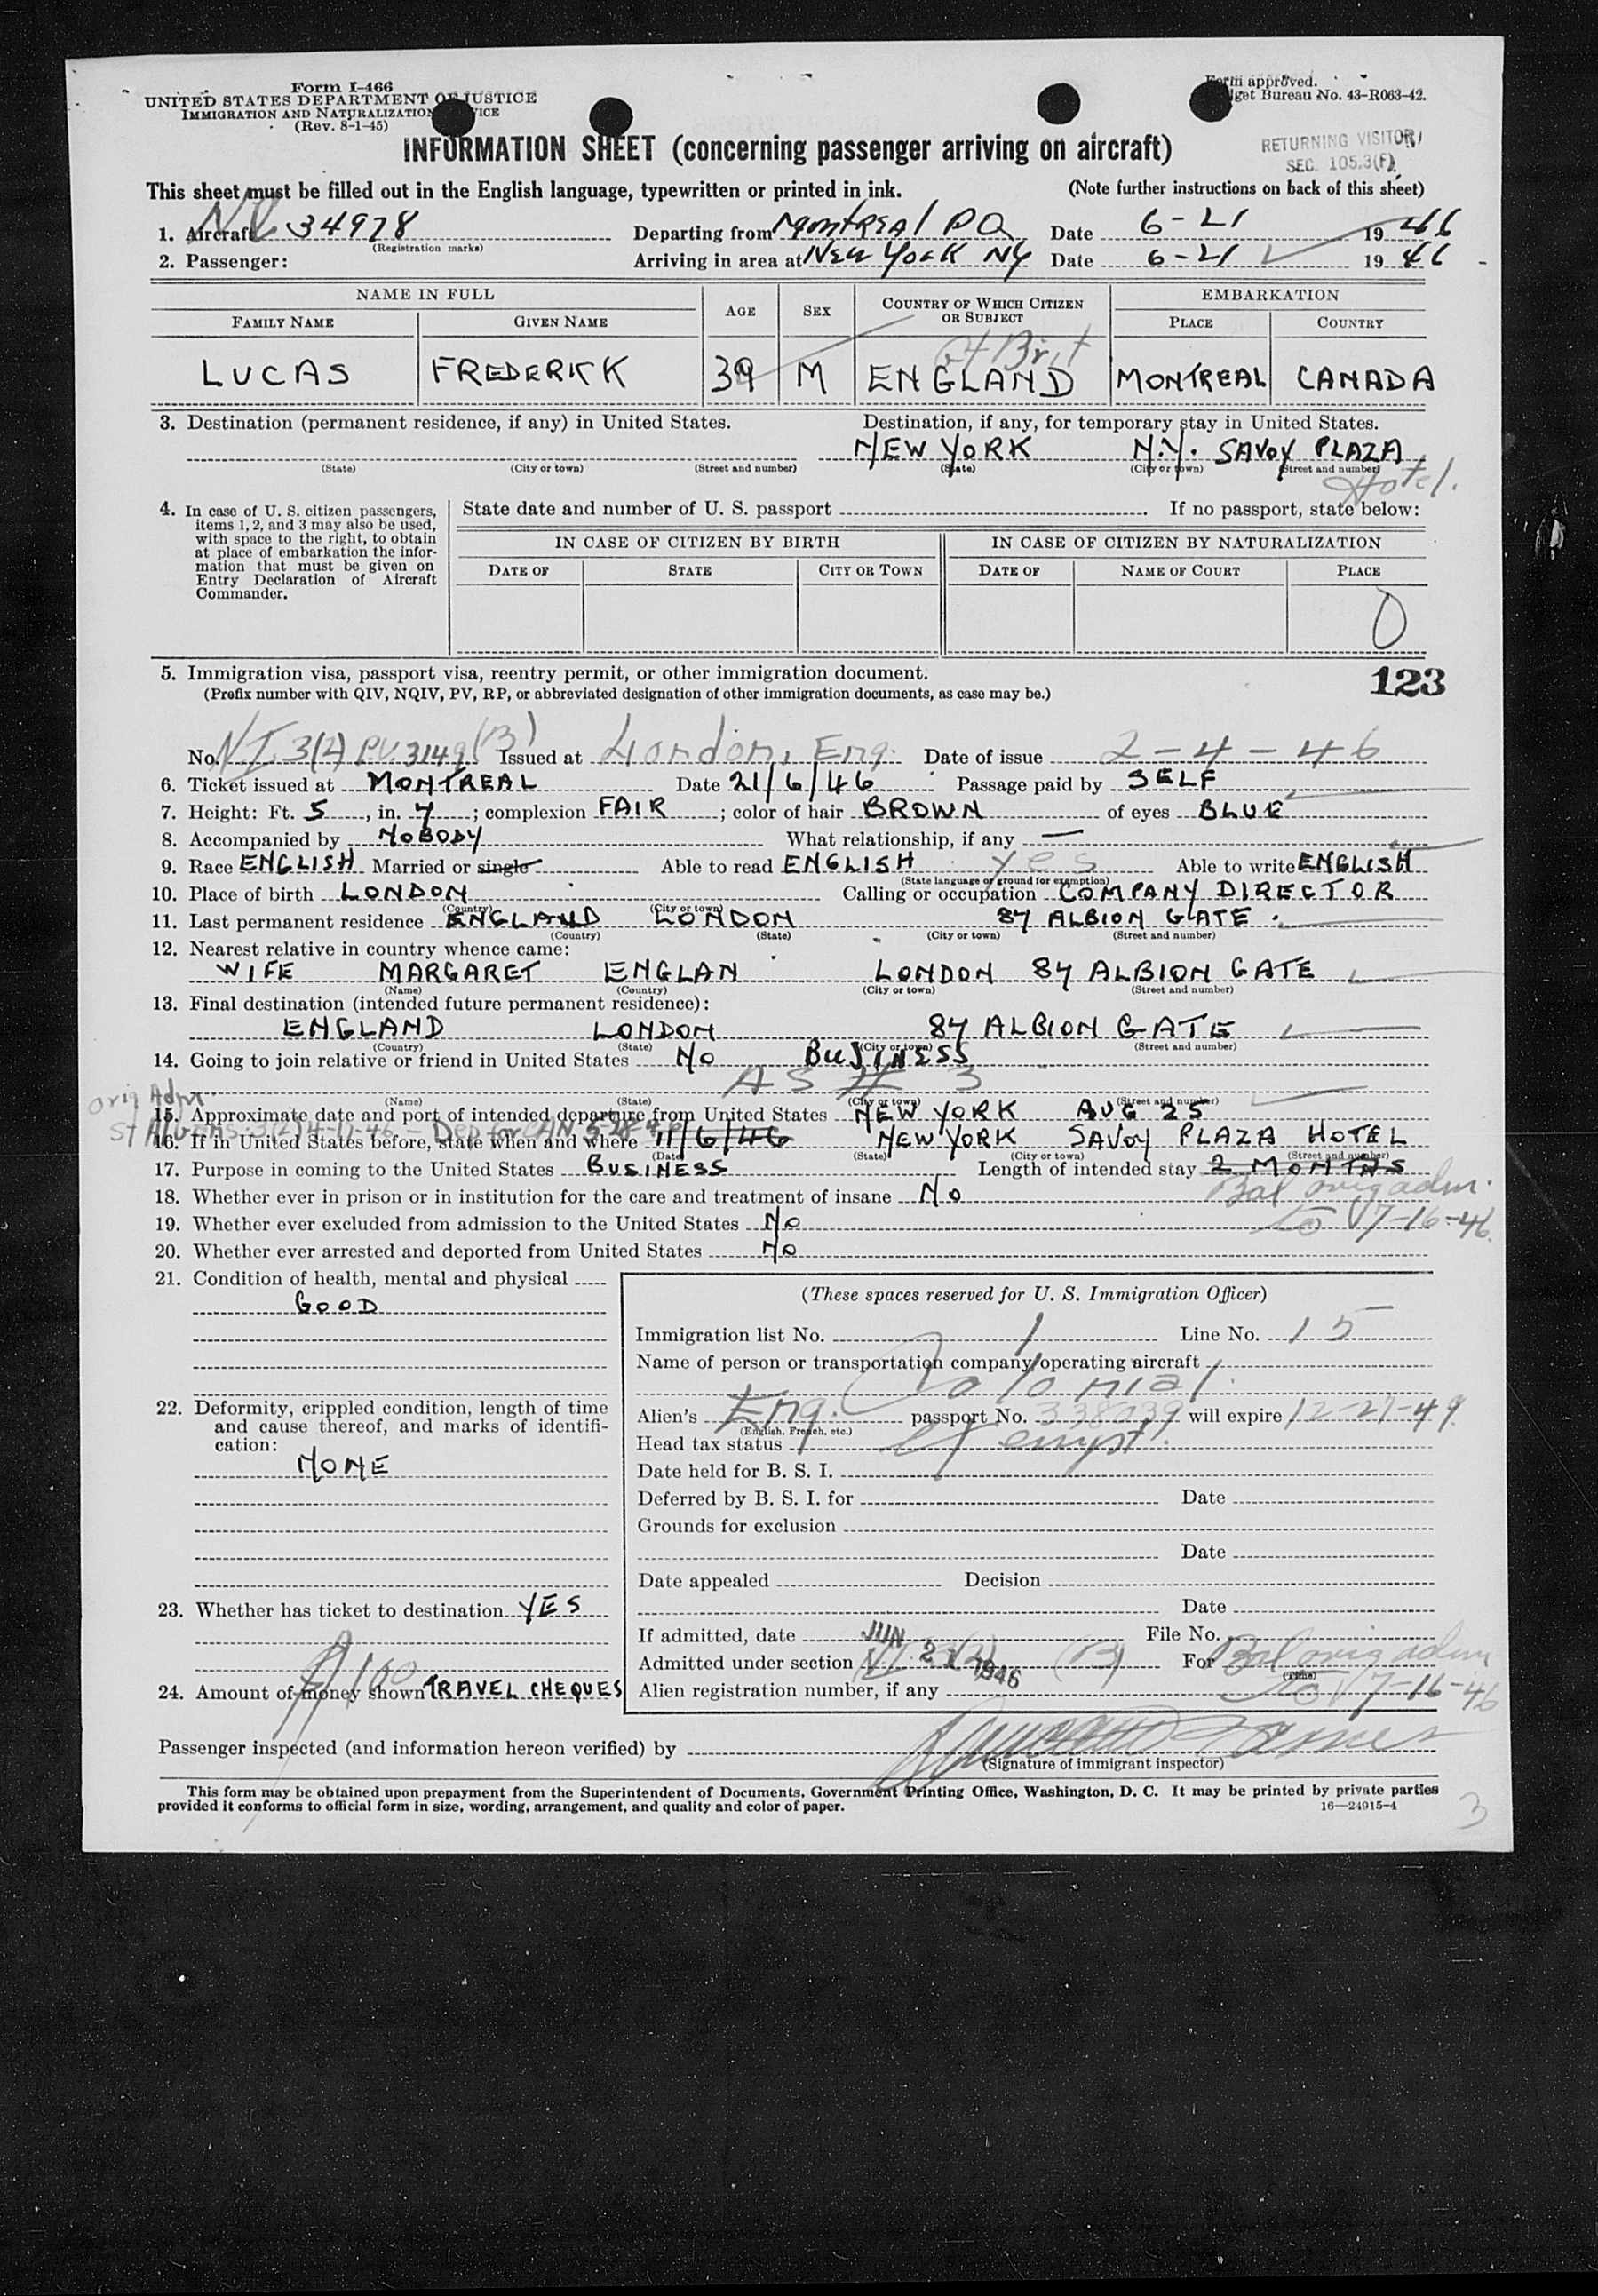 Form I-466
UNITED STATES DEPARTMENT OF JUSTICE
IMMIGRATION AND NATURALIZATION
(Rev. 8-1-45)
Form approved.
Budget Bureau No. 43-R063-42.
INFORMATION SHEET (concerning passenger arriving on aircraft)
RETURNING VISITOR
SEC. 105.3(F)
This sheet must be filled out in the English language, typewritten or printed in ink. (Note further instructions on back of this sheet)
1. Aircraft NC 34978 Departing from Montreal PQ Date 6-21 1946
(Registration marks)
2. Passenger: Arriving in area at New York NY Date 6-21 1946
NAME IN FULL AGE SEX COUNTRY OF WHICH CITIZEN OR SUBJECT EMBARKATION
FAMILY NAME GIVEN NAME PLACE COUNTRY
Gt Brit
LUCAS FREDERICK 39 M ENGLAND MONTREAL CANADA
3. Destination (permanent residence, if any) in United States. Destination, if any, for temporary stay in United States.
NEW YORK N.Y. SAVOY PLAZA
(State) (City or town) (Street and number) (State) (City or town) (Street and number)
Hotel.
4. In case of U. S. citizen passengers, items 1, 2, and 3 may also be used, with space to the right, to obtain at place of embarkation the information that must be given on Entry Declaration of Aircraft Commander.
State date and number of U. S. passport If no passport, state below:
IN CASE OF CITIZEN BY BIRTH IN CASE OF CITIZEN BY NATURALIZATION
DATE OF STATE CITY OR TOWN DATE OF NAME OF COURT PLACE
0
5. Immigration visa, passport visa, reentry permit, or other immigration document.
(Prefix number with QIV, NQIV, PV, RP, or abbreviated designation of other immigration documents, as case may be.)
123
No. NI 3(2) P.V. 3149 (B) Issued at London, Eng. Date of issue 2-4-46
6. Ticket issued at MONTREAL Date 21/6/46 Passage paid by SELF
7. Height: Ft. 5, in. 7; complexion FAIR; color of hair BROWN of eyes BLUE
8. Accompanied by NOBODY What relationship, if any —
9. Race ENGLISH Married or single Able to read ENGLISH yes Able to write ENGLISH
(State language or ground for exemption)
10. Place of birth LONDON Calling or occupation COMPANY DIRECTOR
(Country) (City or town)
11. Last permanent residence ENGLAND LONDON 87 ALBION GATE.
(Country) (State) (City or town) (Street and number)
12. Nearest relative in country whence came:
WIFE MARGARET ENGLAN LONDON 87 ALBION GATE
(Name) (Country) (City or town) (Street and number)
13. Final destination (intended future permanent residence):
ENGLAND LONDON 87 ALBION GATE
(Country) (State) (City or town) (Street and number)
14. Going to join relative or friend in United States NO BUSINESS
AS # 3
orig Adm.
(Name) (State) (City or town) (Street and number)
15. Approximate date and port of intended departure from United States NEW YORK AUG 25
St Albans
16. If in United States before, state when and where 11/6/46 NEW YORK SAVOY PLAZA HOTEL
(Date) (State) (City or town) (Street and number)
17. Purpose in coming to the United States BUSINESS Length of intended stay 2 MONTHS
18. Whether ever in prison or in institution for the care and treatment of insane NO
Bal orig adm.
19. Whether ever excluded from admission to the United States NO
to 7-16-46.
20. Whether ever arrested and deported from United States NO
21. Condition of health, mental and physical
GOOD
22. Deformity, crippled condition, length of time and cause thereof, and marks of identification:
NONE
23. Whether has ticket to destination YES
$100
24. Amount of money shown TRAVEL CHEQUES
(These spaces reserved for U. S. Immigration Officer)
Immigration list No. 1 Line No. 15
Name of person or transportation company operating aircraft
Colonial.
Alien's Eng. passport No. 338039 will expire 12-27-49.
(English, French, etc.)
Head tax status Exempt.
Date held for B. S. I.
Deferred by B. S. I. for Date
Grounds for exclusion
Date
Date appealed Decision
Date
If admitted, date JUN 21 1946 File No.
Admitted under section (B) For Bal orig adm
(Time)
Alien registration number, if any to 7-16-46
Passenger inspected (and information hereon verified) by
(Signature of immigrant inspector)
This form may be obtained upon prepayment from the Superintendent of Documents, Government Printing Office, Washington, D. C. It may be printed by private parties
provided it conforms to official form in size, wording, arrangement, and quality and color of paper. 16—24915-4
3